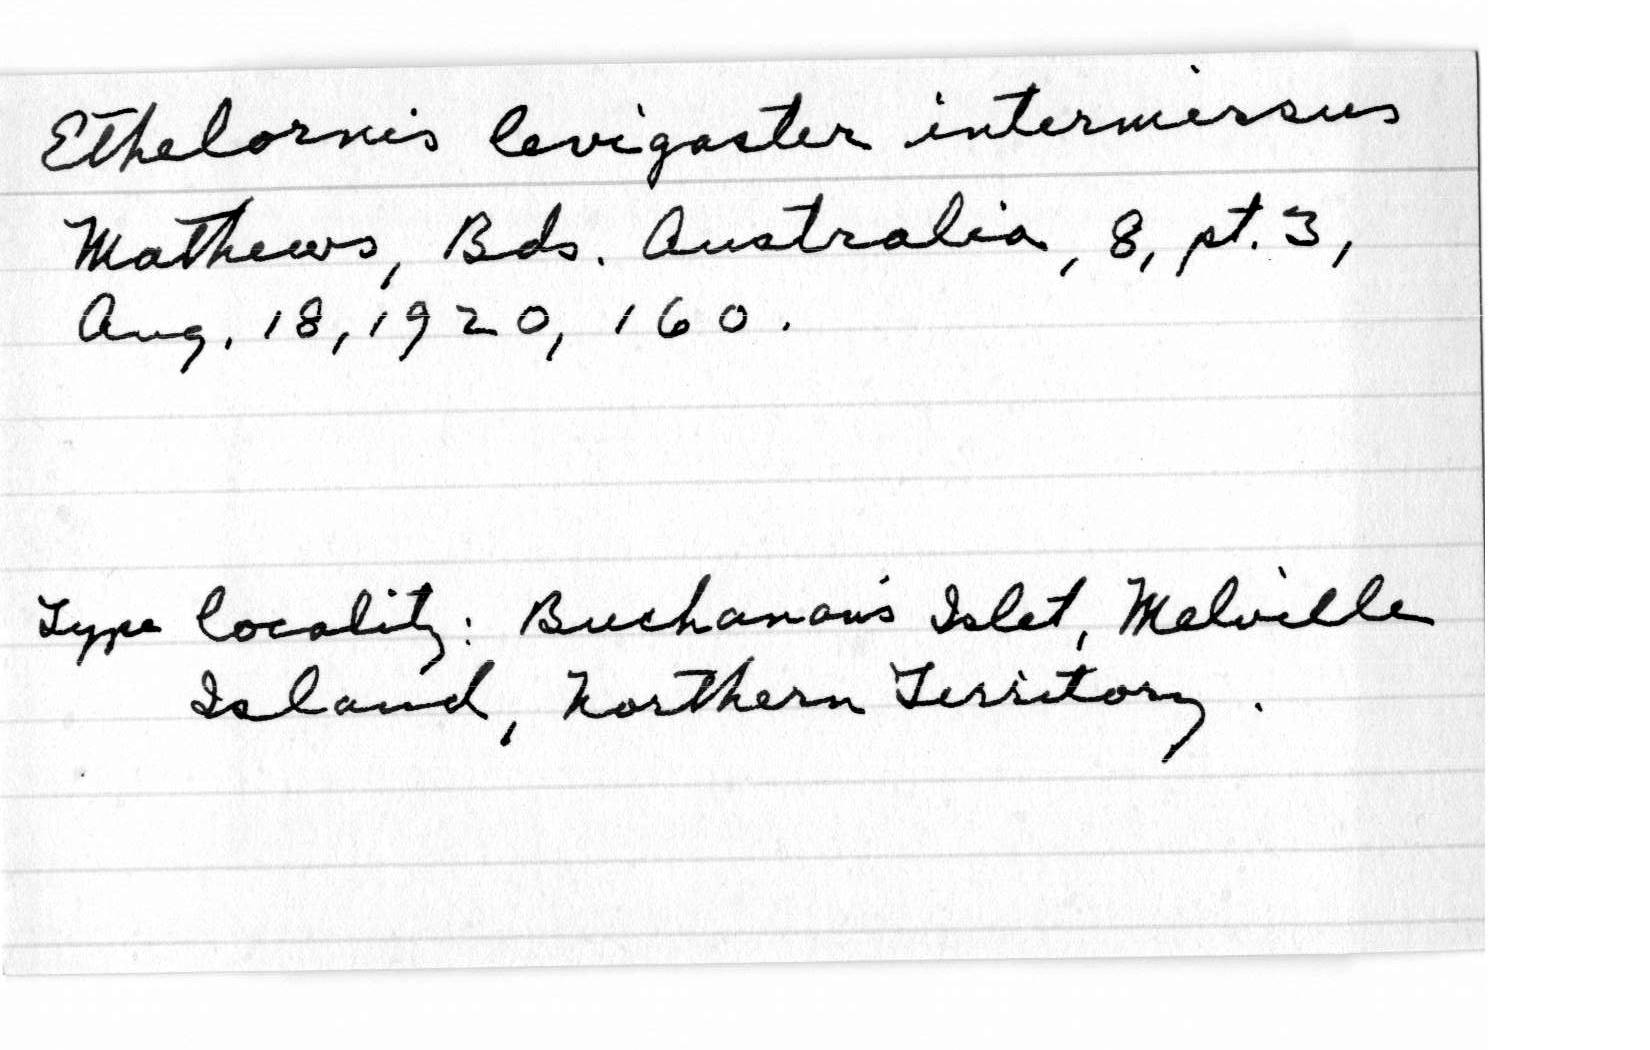 Ethelornis levigaster intermissus
Mathews, Bds. Australia, 8, pt. 3,
Aug. 18, 1920, 160.
Type locality: Buchanan's Islet, Melville
Island, Northern Territory.